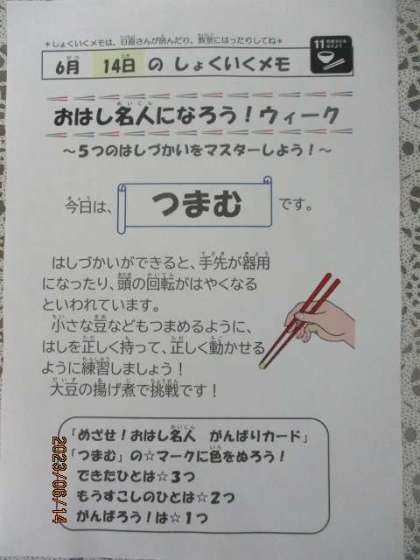 ＊しょくいくメモは、日直さんが読んだり、教室にはったりしてね＊
6月 14日 の しょくいくメモ
おはし名人になろう！ウィーク
～5つのはしづかいをマスターしよう！～
今日は、 つまむ です。
はしづかいができると、手先が器用
になったり、頭の回転がはやくなる
といわれています。
小さな豆などもつまめるように、
はしを正しく持って、正しく動かせる
ように練習しましょう！
大豆の揚げ煮で挑戦です！
「めざせ！おはし名人　がんばりカード」
「つまむ」の☆マークに色をぬろう！
できたひとは☆3つ
もうすこしのひとは☆2つ
がんばろう！は☆1つ
2023/06/14